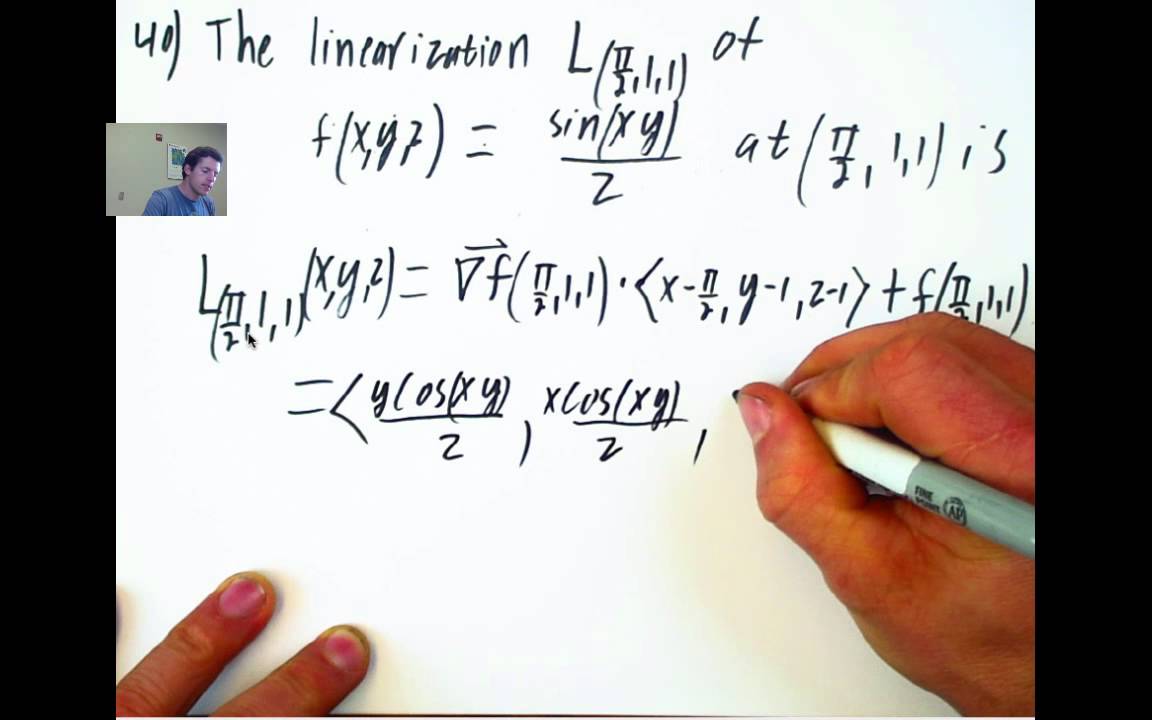 40) The linearization L(π/2,1,1) of
f(x,y,z) = sin(xy)/z at (π/2, 1,1) is
L(π/2,1,1)(x,y,z) = ∇f(π/2,1,1)·⟨x-π/2, y-1, z-1⟩ + f(π/2,1,1)
=⟨ycos(xy)/z, xcos(xy)/z,
FINE
POINT
AP